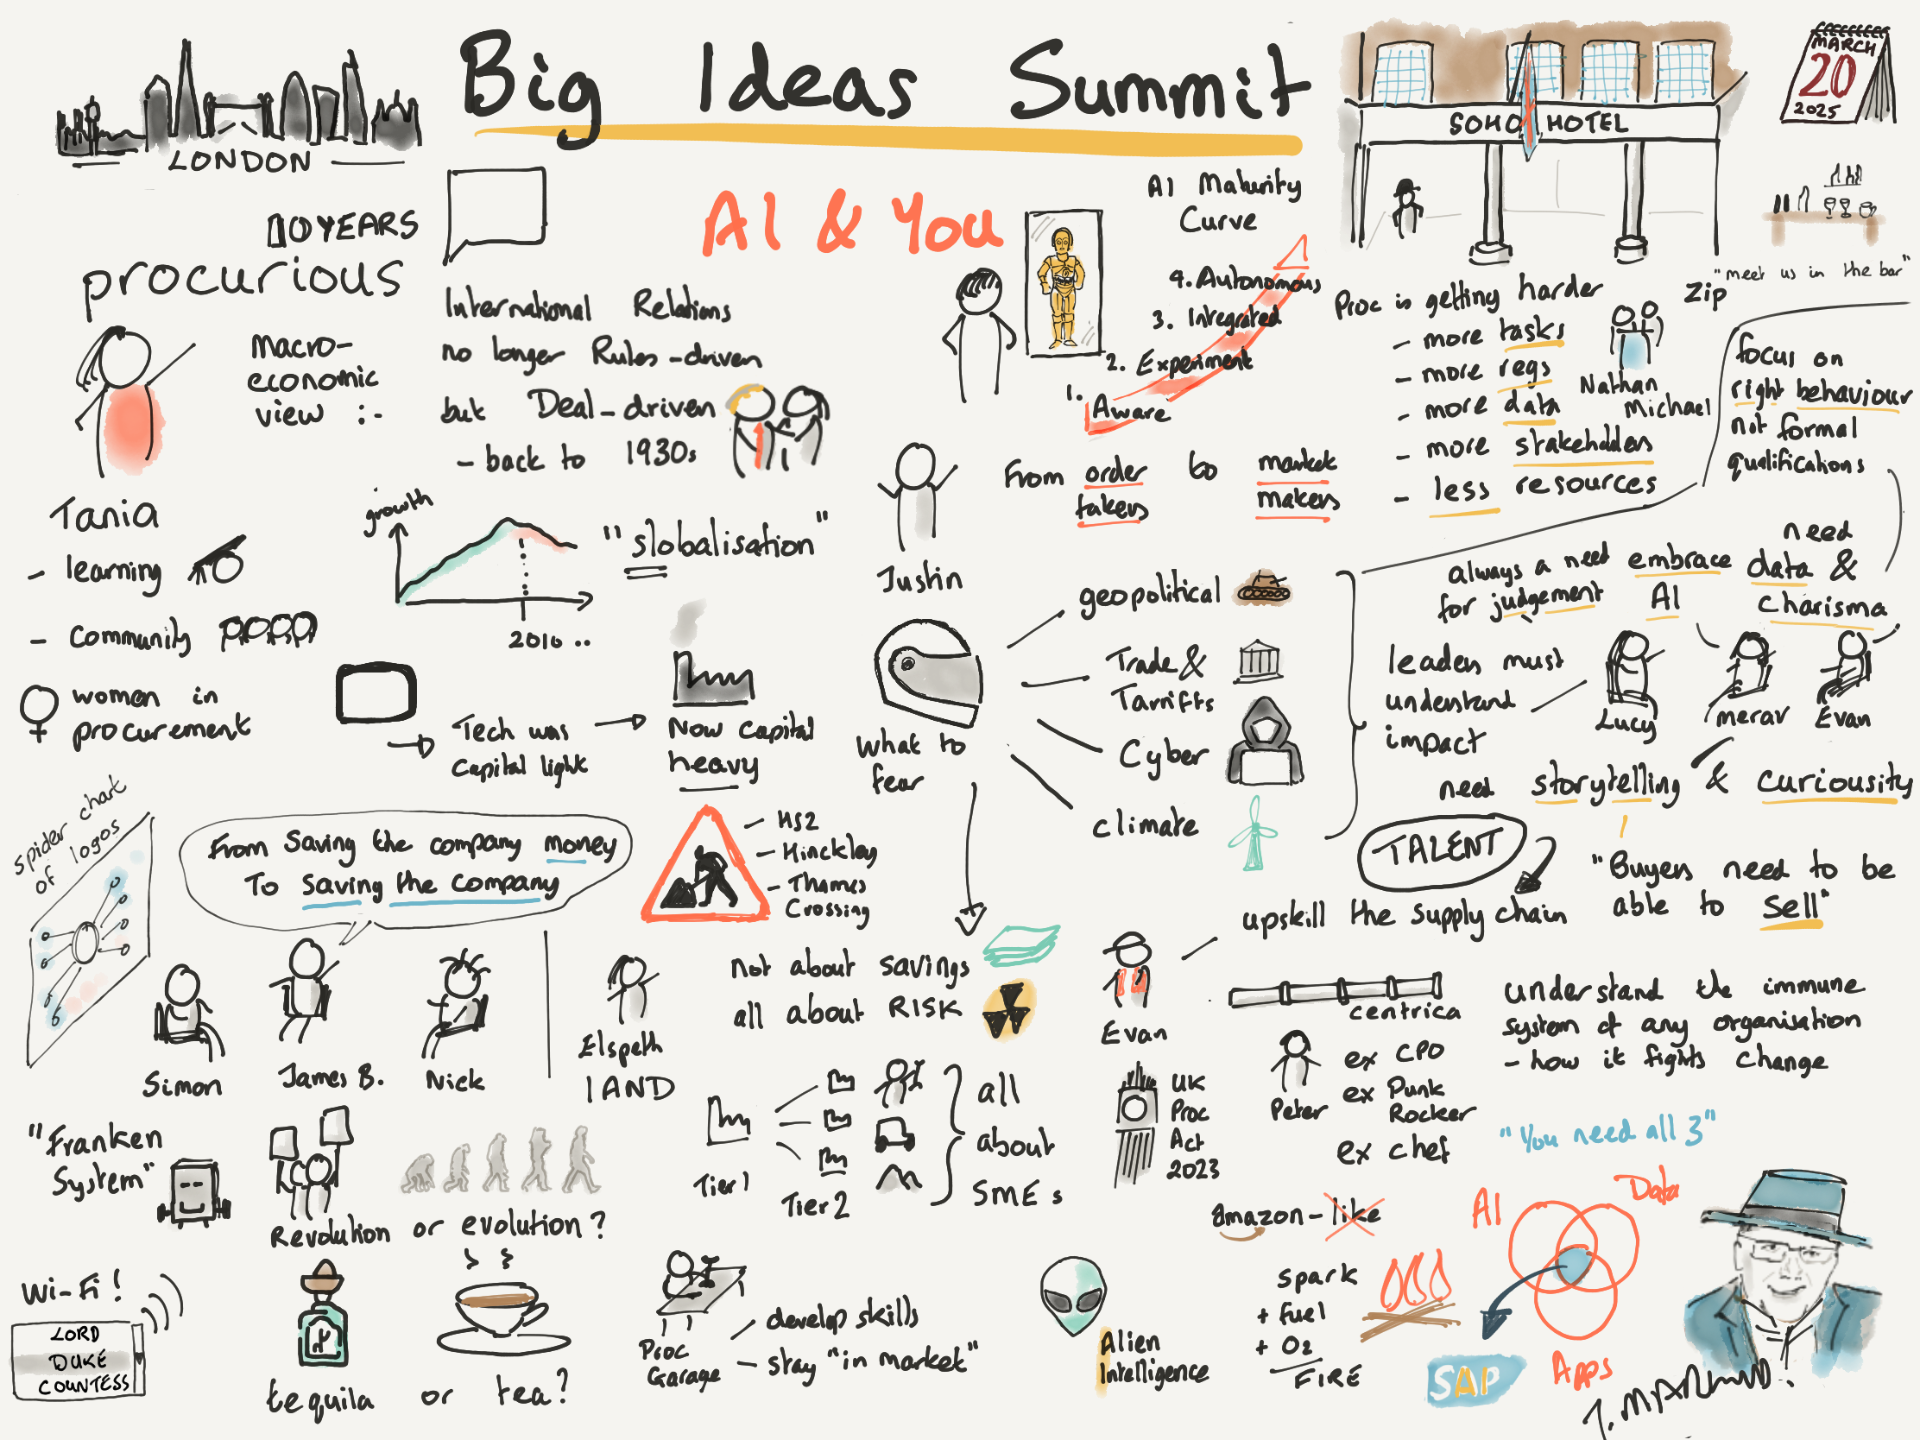 Big Ideas Summit
LONDON
SOHO HOTEL
MARCH
20
2025
"meet us in the bar"
10 YEARS
procurious
Macro-
economic
view :-
Tania
- learning
- community
women in
procurement
AI & You
International Relations
no longer Rules-driven
but Deal-driven
- back to 1930s
growth
2010 ..
"slobalisation"
Tech was
Capital light
Now Capital
heavy
AI Maturity
Curve
4. Autonomous
3. Integrated
2. Experiment
1. Aware
Justin
From order to market
takers makers
What to
fear
geopolitical
Trade &
Tarrifts
Cyber
climate
Proc is getting harder
- more tasks
- more regs
- more data
- more stakeholders
- less resources
Zip
Nathan
Michael
focus on
right behaviour
not formal
qualifications
always a need
for judgement
embrace
AI
need
data &
charisma
leaders must
understand
impact
Lucy
merav
Evan
need storytelling & curiousity
TALENT
"Buyers need to be
able to sell"
upskill the supply chain
Evan
spider chart
of logos
From Saving the company money
To saving the company
Simon
James B.
Nick
- HS2
- Hinckley
- Thames
Crossing
Elspeth
IAND
not about savings
all about RISK
Tier 1
Tier 2
all
about
SMEs
UK
Proc
Act
2023
centrica
Peter
ex CPO
ex Punk
Rocker
ex chef
understand the immune
system of any organisation
- how it fights change
"You need all 3"
AI
Data
Apps
SAP
"Franken
System"
Revolution or evolution?
Wi-Fi!
LORD
DUKE
COUNTESS
tequila or tea?
Proc
Garage
- develop skills
- stay "in market"
Alien
Intelligence
amazon-like
spark
+ fuel
+ O2
FIRE